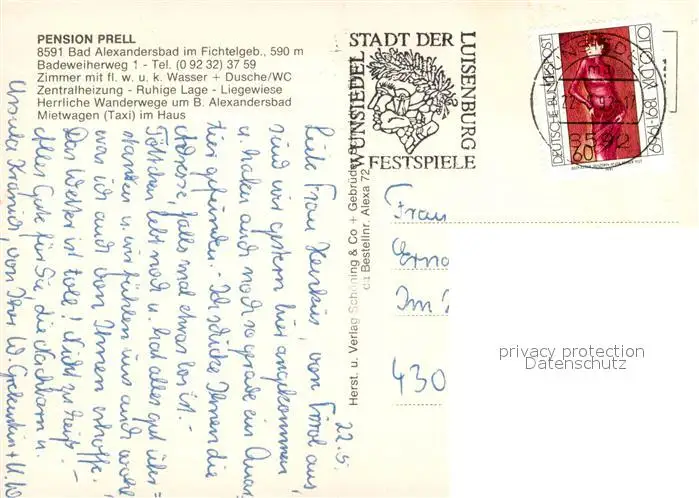 PENSION PRELL
8591 Bad Alexandersbad im Fichtelgeb., 590 m
Badeweiherweg 1 - Tel. (0 92 32) 37 59
Zimmer mit fl. w. u. k. Wasser + Dusche/WC
Zentralheizung - Ruhige Lage - Liegewiese
Herrliche Wanderwege um B. Alexandersbad
Mietwagen (Taxi) im Haus
STADT DER
LUISENBURG
WUNSIEDEL
FESTSPIELE
DEUTSCHE BUNDESPOST
OTTO DIX 1891-1969
60
8592
Herst. u. Verlag Schöning & Co + Gebrüder
Bestellnr. Alexa 72
22.5.
Liebe Frau Henkus, von Tirol aus
sind wir gestern hier angekommen
u. haben auch noch so gerade ein Quar
tier gefunden. - Ich schicke Ihnen die
Adresse, falls mal etwas los ist. -
lebt noch u. hat alles gut über=
standen u. wir fühlen uns auch wohl
was ich auch von Ihnen erhoffe.
Das Wetter ist toll! Nicht zu heiß. -
Alles Gute für Sie, die Nachbarn u.
von Ihrer W.
Frau
Erna
Im
430
privacy protection
Datenschutz